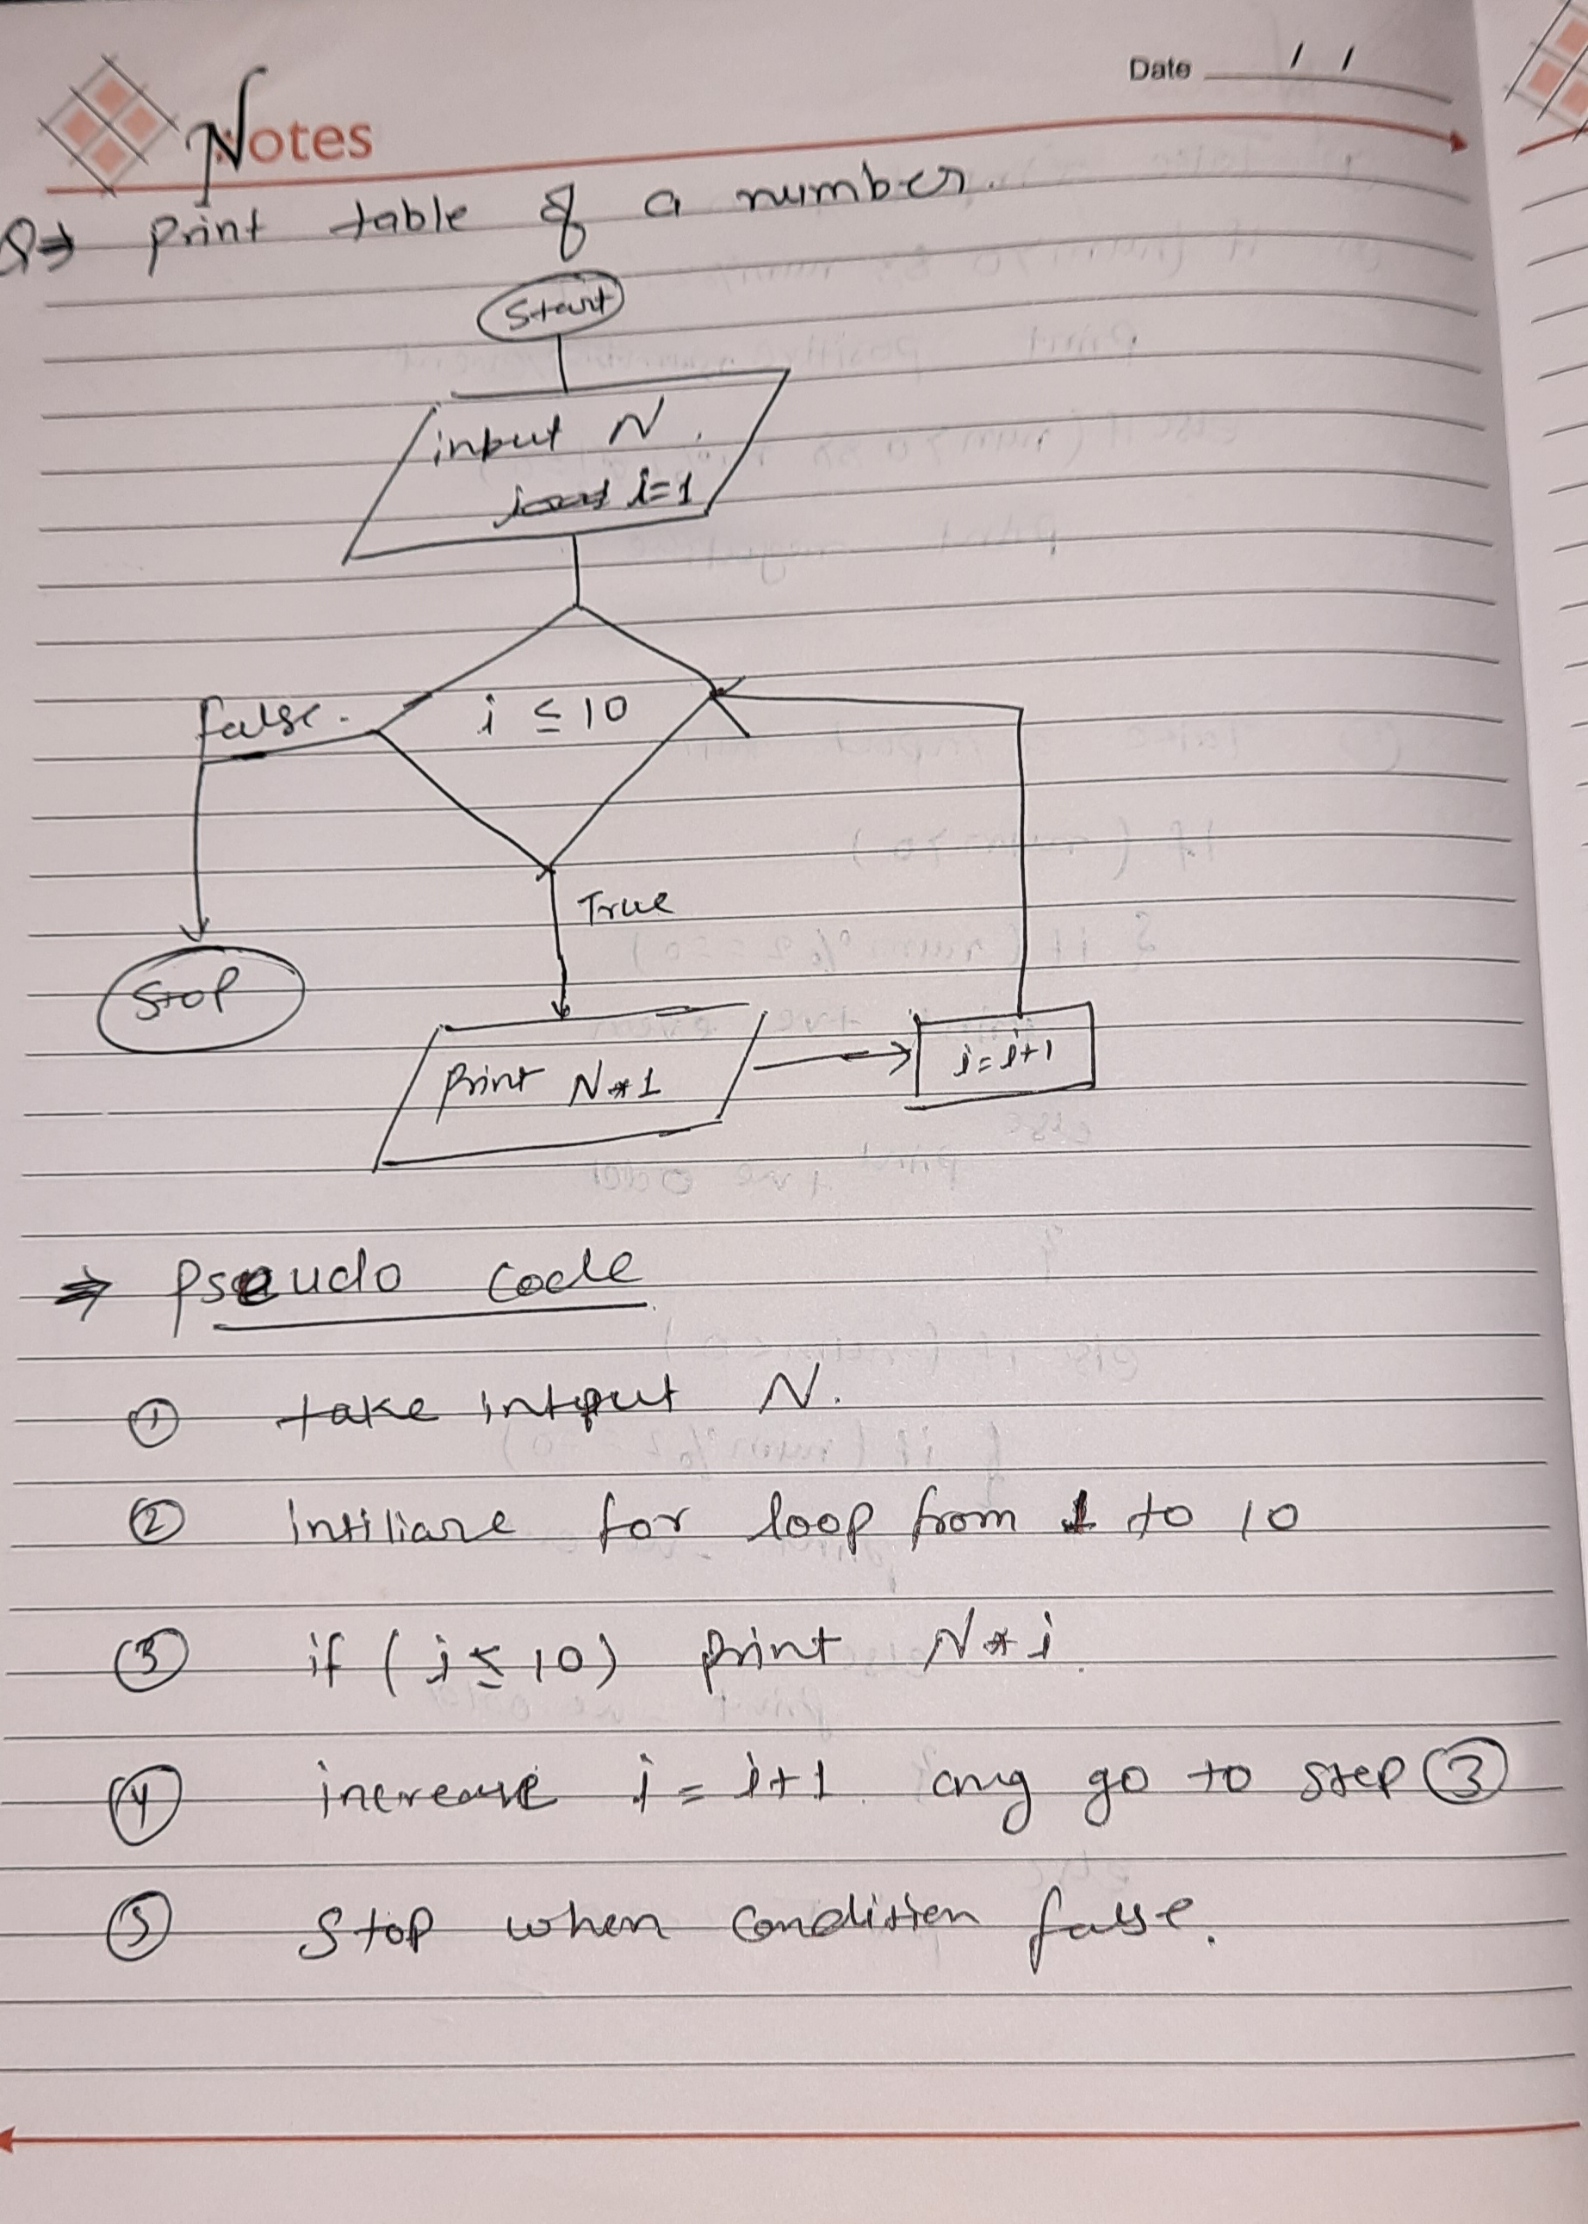 Date / /
Notes
Q⇒ Print table of a number.
Start
input N.
i=1
i ≤ 10
false.
True
Stop
Print N*1
i=i+1
⇒ Pseudo code
① take intput N.
② Intiliare for loop from 1 to 10
③ if (i≤10) print N*i.
④ increase i = i+1. go to step ③
⑤ Stop when condition false.